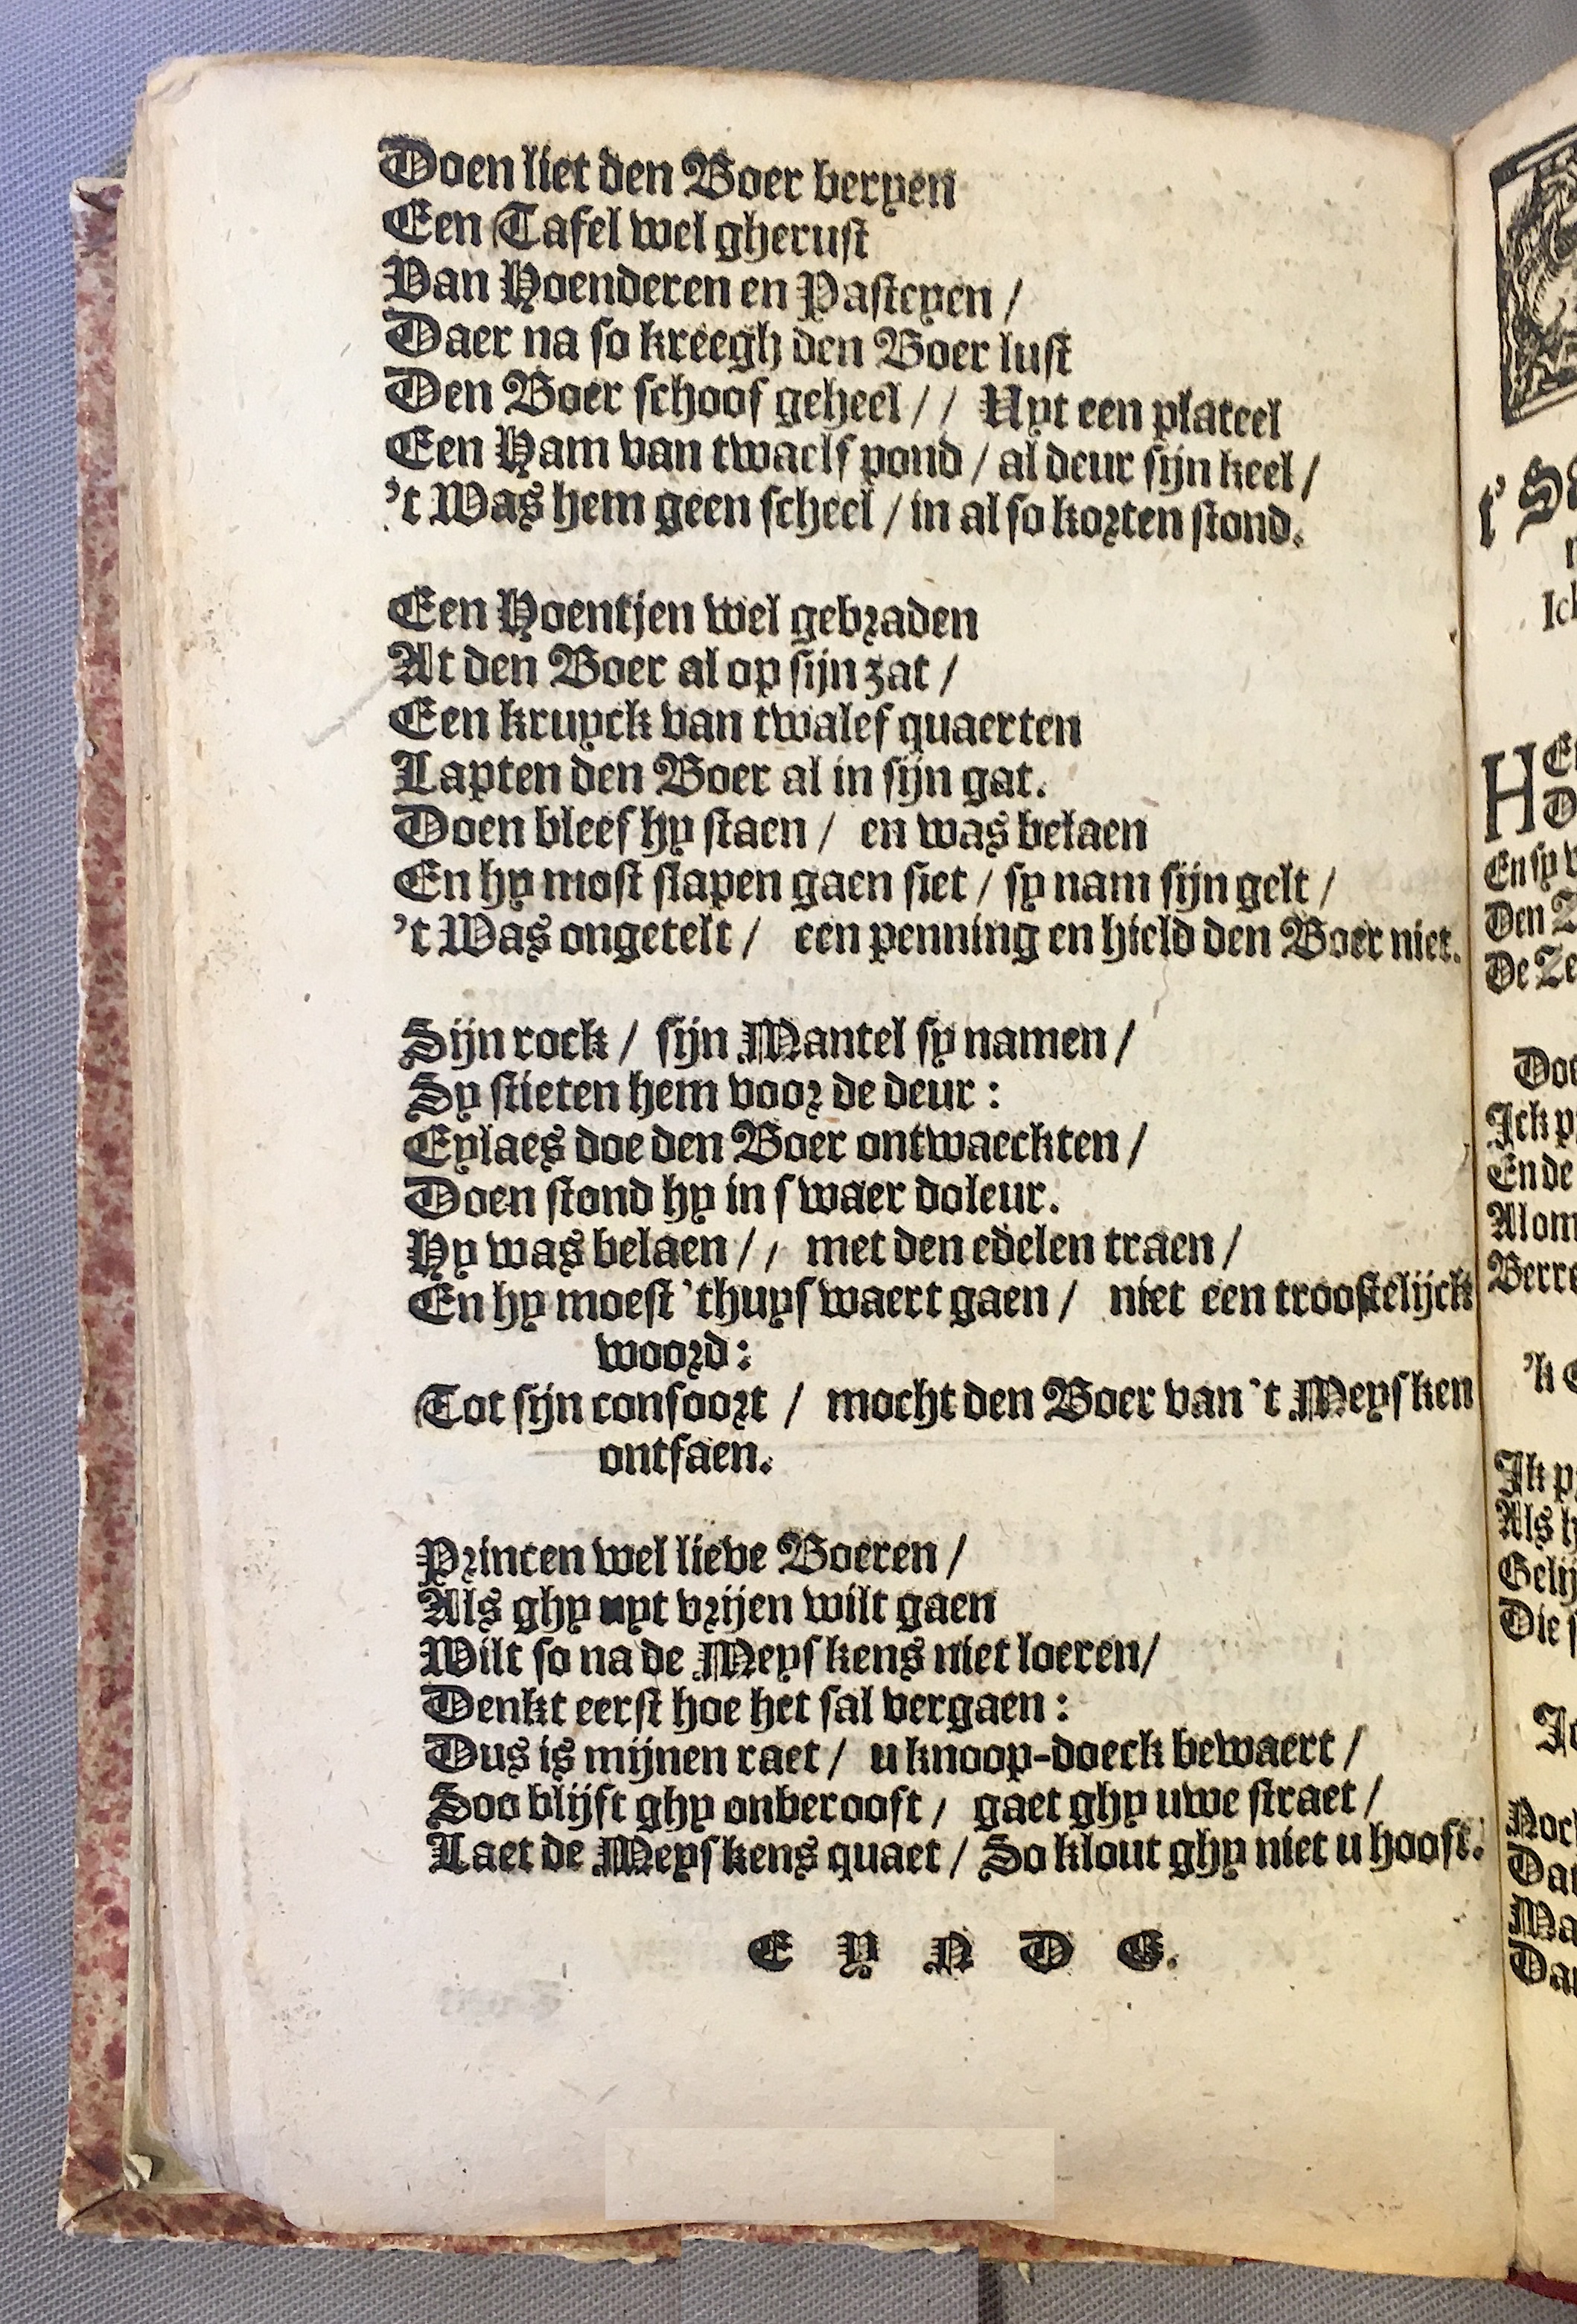 Doen liet den Boer beryen
Een Tafel wel gherust
Van Hoenderen en Pasteyen /
Daer na so kreegh den Boer lust
Den Boer schoof geheel / / Uyt een plateel
Een Ham van twaelf pond / al deur sijn keel /
't Was hem geen scheel / in al so korten stond.
Een Hoentjen wel gebraden
At den Boer al op sijn zat /
Een kruyck van twalef quaerten
Lapten den Boer al in sijn gat.
Doen bleef hy staen / en was belaen
En hy most slapen gaen siet / sy nam sijn gelt /
't Was ongetelt / een penning en hield den Boer niet.
Sijn rock / sijn Mantel sy namen /
Sy stieten hem voor de deur :
Eylaes doe den Boer ontwaeckten /
Doen stond hy in swaer doleur.
Hy was belaen / / met den edelen traen /
En hy moest 'thuys waert gaen / niet een troostelijck
woord :
Tot sijn confoort / mocht den Boer van 't Meysken
ontfaen.
Princen wel lieve Boeren /
Als ghy uyt vrijen wilt gaen
Wilt so na de Meyskens niet loeren /
Denkt eerst hoe het sal vergaen :
Dus is mijnen raet / u knoop-doeck bewaert /
Soo blijft ghy onberooft / gaet ghy uwe straet /
Laet de Meyskens quaet / So klout ghy niet u hooft.
E Y N D E.
t' Sa
Ick
HE
D
En sy v
Den Z
De Ze
Doe
Ick p
En de
Alom
Berre
'k
Ik p
Als h
Gelij
Die s
Noch
Dat
Ma
Dat